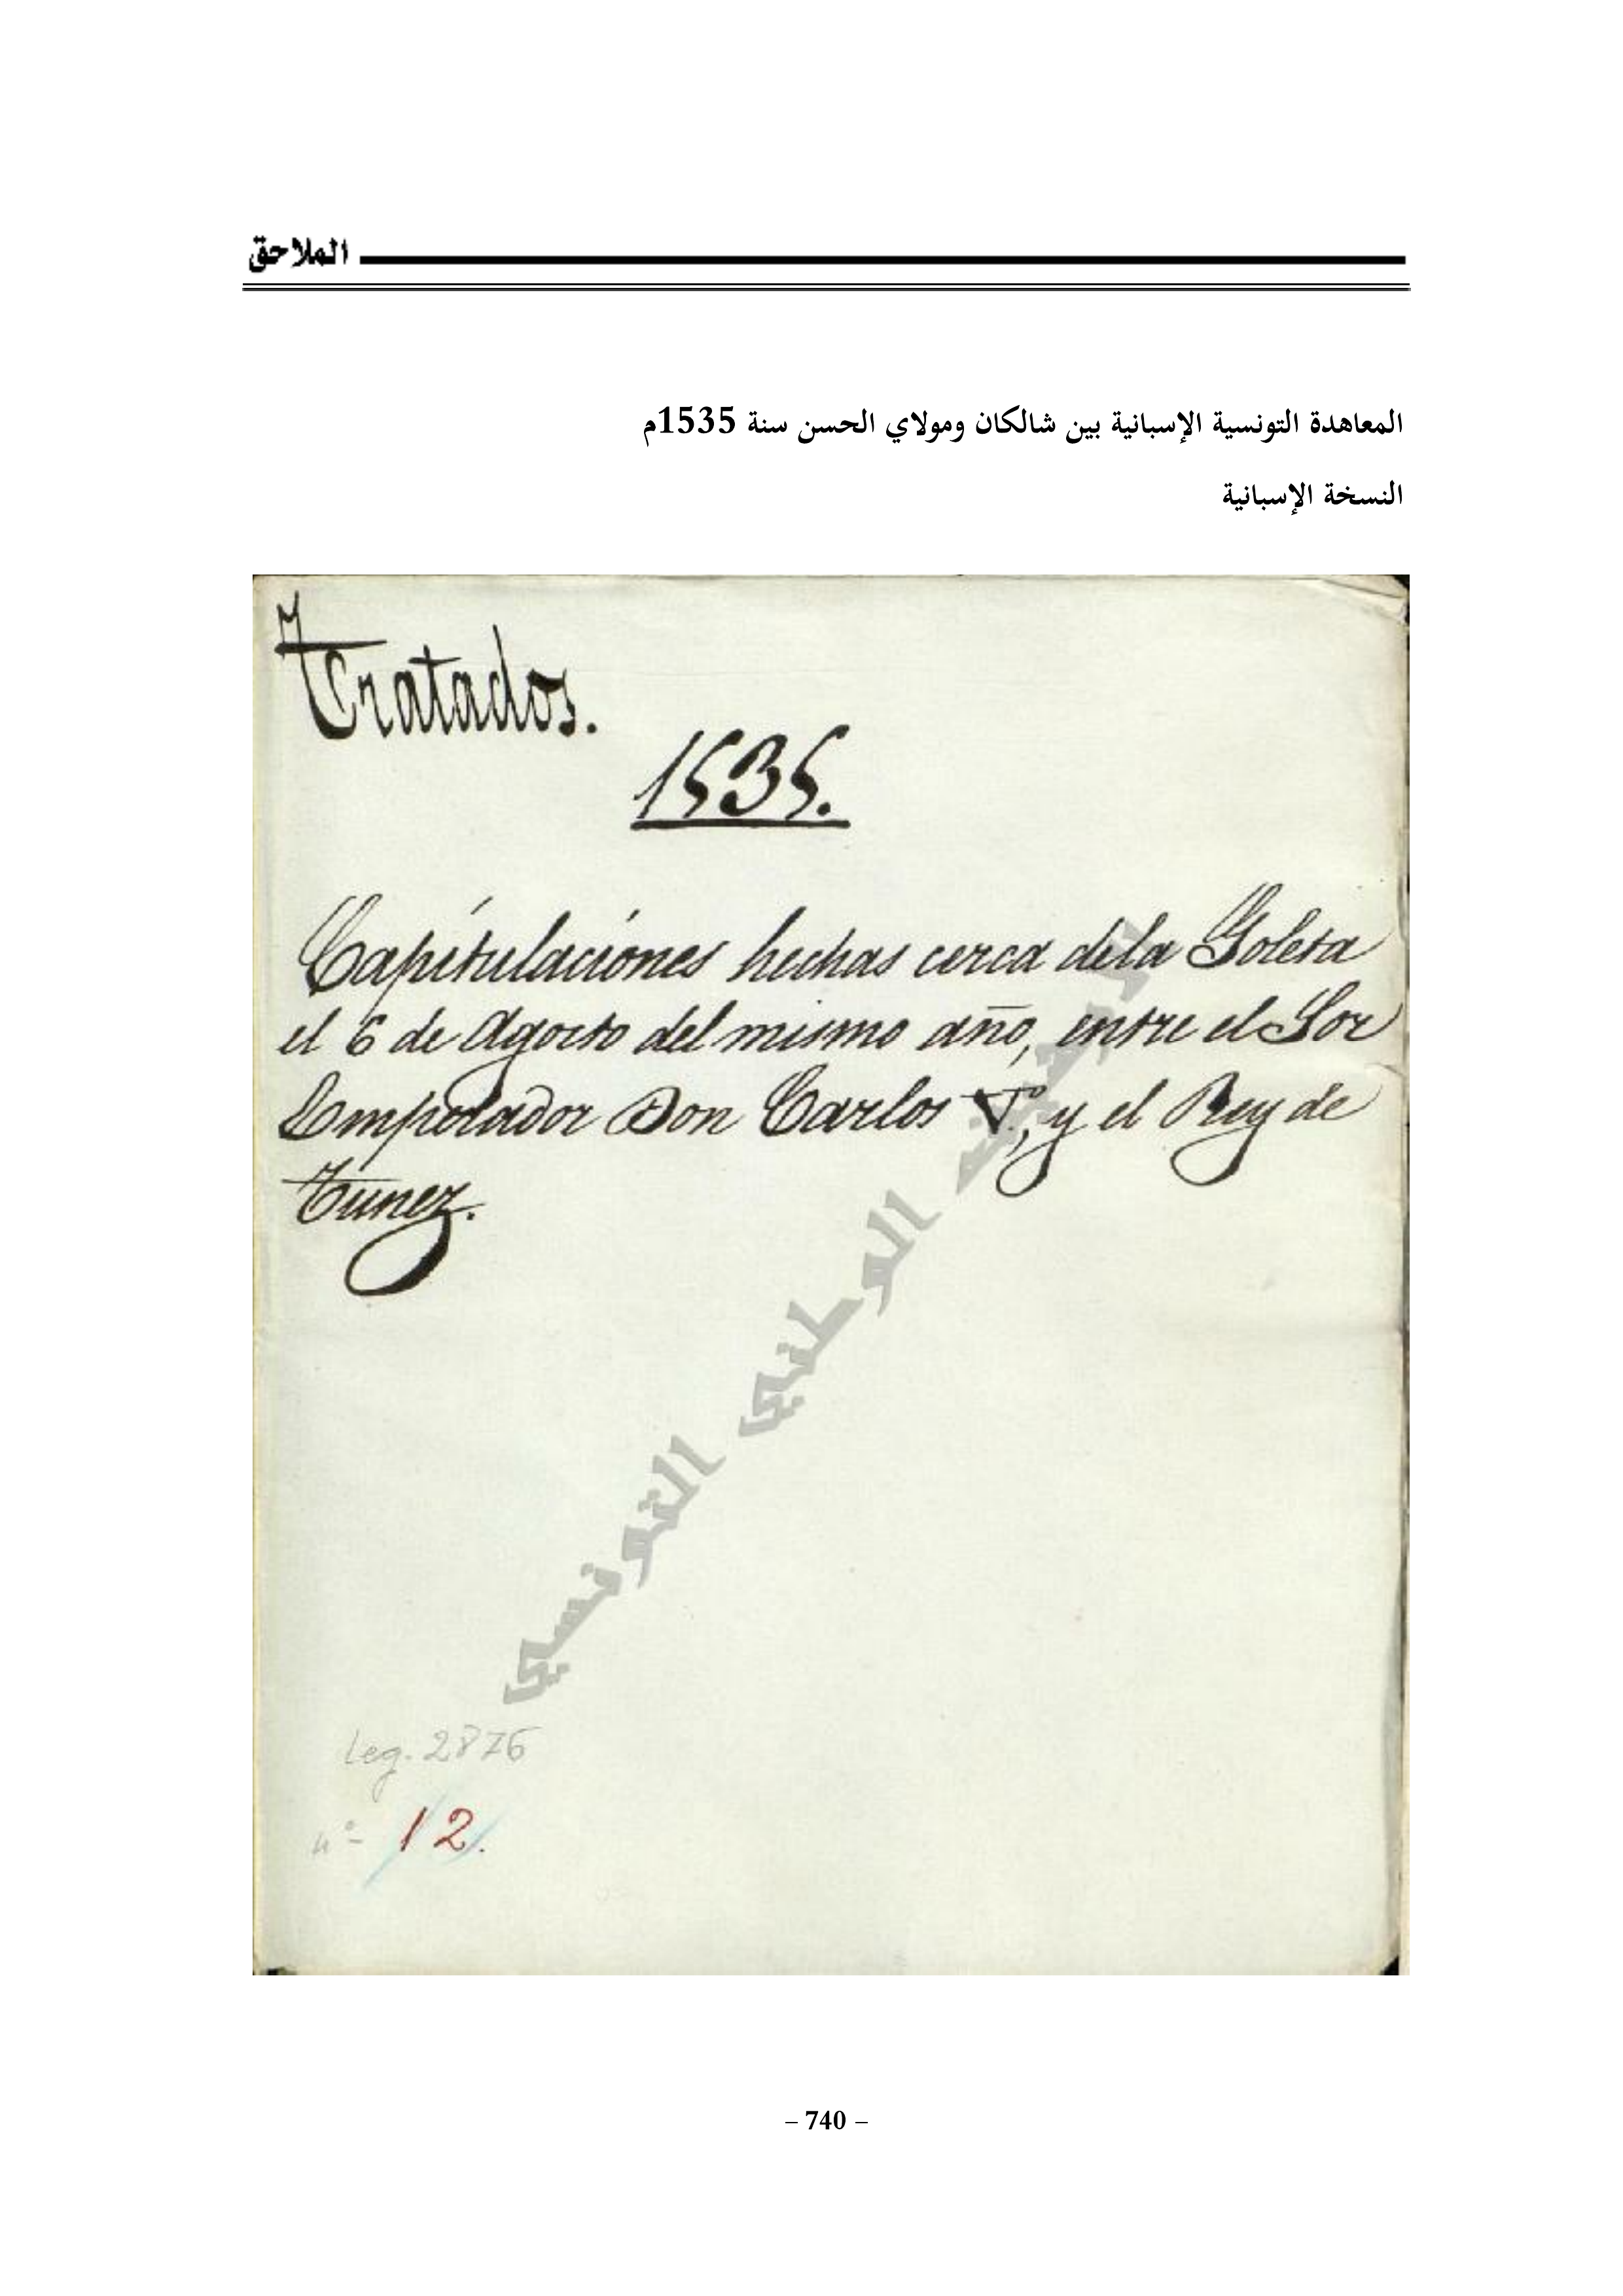 الملاحق
المعاهدة التونسية الإسبانية بين شالكان ومولاي الحسن سنة 1535م
النسخة الإسبانية
Tratados.
1535.
Capitulaciones hechas cerca de la Goleta
el 6 de Agosto del mismo año, entre el Sor
Emperador Don Carlos Vº, y el Rey de
Tunez.
الوطني التونسي
Leg. 2876
nº 12.
– 740 –